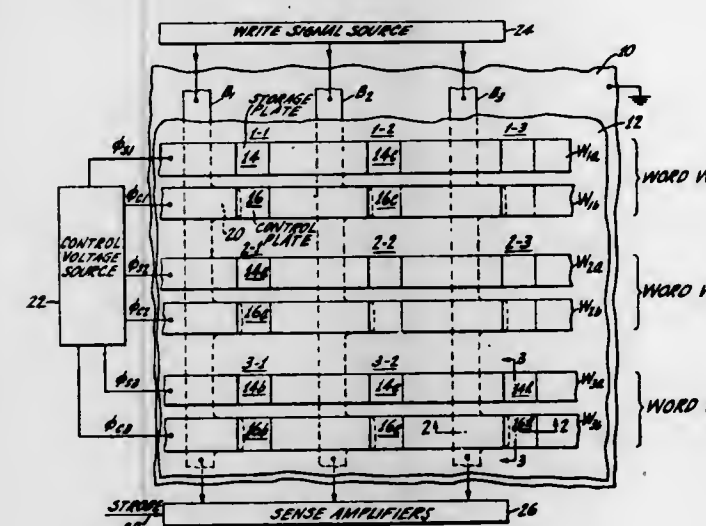 WRITE SIGNAL SOURCE
24
10
B1
B2
B3
STORAGE PLATE
12
1-1
1-2
1-3
ΦS1
14
14c
W1a
WORD W
ΦC1
16
16c
W1b
20
CONTROL PLATE
CONTROL VOLTAGE SOURCE
22
2-1
2-2
2-3
ΦS2
14a
W2a
WORD W
ΦC2
16a
W2b
3-1
3-2
3
ΦS3
14b
W3a
WORD
16b
2
2
3
STROBE
SENSE AMPLIFIERS
26